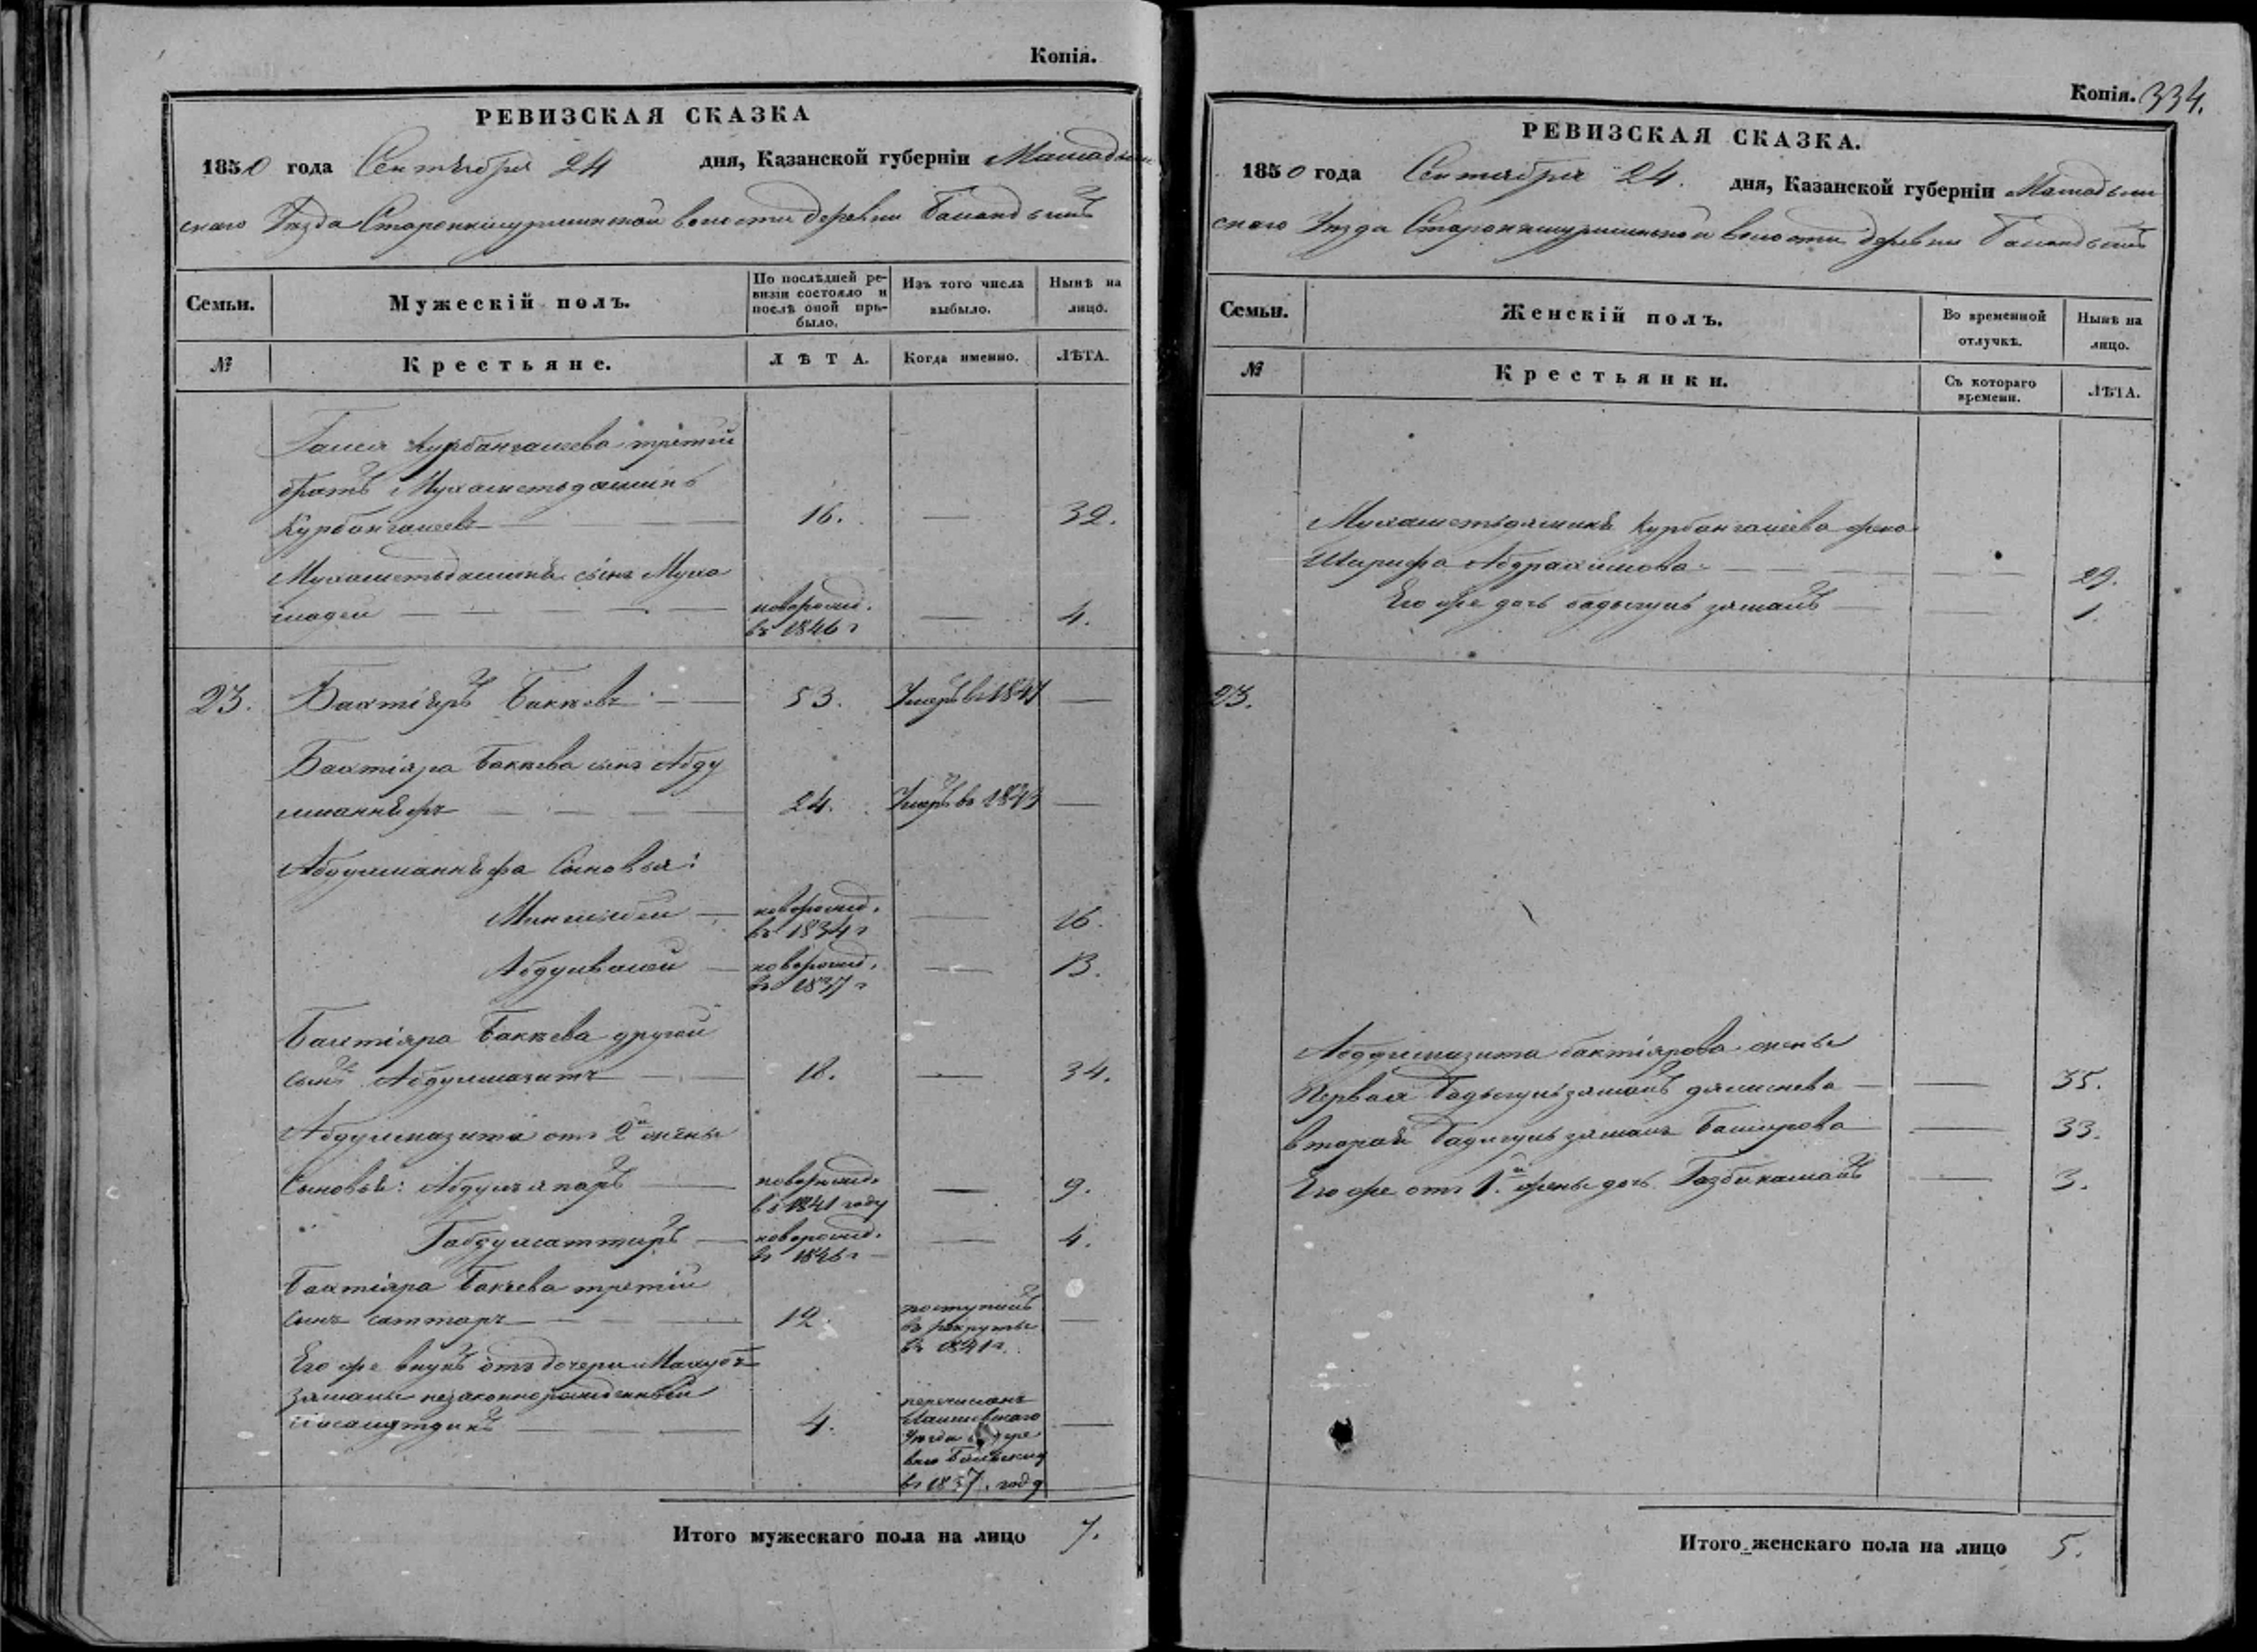 Копія.
РЕВИЗСКАЯ СКАЗКА
1850 года Сентября 24 дня, Казанской губерніи Мамадыш
скаго Уѣзда Старокишуршинской волости деревни
Семьи.
Мужескій полъ.
По послѣдней ре-
визіи состояло и
послѣ оной при-
было.
Изъ того числа
выбыло.
Нынѣ на
лицо.
№
Крестьяне.
ЛѢТА.
Когда именно.
ЛѢТА.
Курбангалеева третій
братъ Мухаметьдаминъ
Курбангалеевъ 16. — 32.
Мухаметьдамина сынъ Муха
мадей новорожд.
въ 1846 г — 4.
23. Бахтіяръ Бакѣевъ 53. Умеръ въ 1841 —
Бахтіяра Бакѣева сынъ Абду
лманнѣфъ 24. Умеръ въ 1843 —
Абдулманнѣфа Сыновья:
новорожд.
въ 1834 г — 16.
Абдулвалей новорожд.
въ 1837 г — 13.
Бахтіяра Бакѣева другой
сынъ Абдулмазитъ 18. — 34.
Абдулмазита отъ 2й жены
Сыновья: Абдулзяпаръ новорожд.
въ 1841 году — 9.
Габдулсаттаръ новорожд.
въ 1846 г — 4.
Бахтіяра Бакѣева третій
сынъ Саттаръ 12. поступилъ
въ рекруты
въ 1841 г. —
Его же внукъ отъ дочери Махубъ
замалы незаконнорожденный
4. перечисленъ
Лаишевскаго
Уѣзда въ дере
вню
въ 1837 году —
Итого мужескаго пола на лицо 7.
Копія. 334.
РЕВИЗСКАЯ СКАЗКА.
1850 года Сентября 24. дня, Казанской губерніи Мамадыш
скаго Уѣзда Старокишуршинской волости деревни
Семьи.
Женскій полъ.
Во временной
отлучкѣ.
Нынѣ на
лицо.
№
Крестьянки.
Съ котораго
времени.
ЛѢТА.
Мухаметьдамина Курбангалеева жена
Шарифа Абдрахимова — 29.
Его же дочь Бадыгульзямалъ — 1.
23.
Абдулмазита Бахтіярова жены
Первая Бадыгульзямалъ — 35.
вторая Бадигульзямалъ Баширова — 33.
Его же отъ 1й жены дочь Газбикамалъ — 3.
Итого женскаго пола на лицо 5.